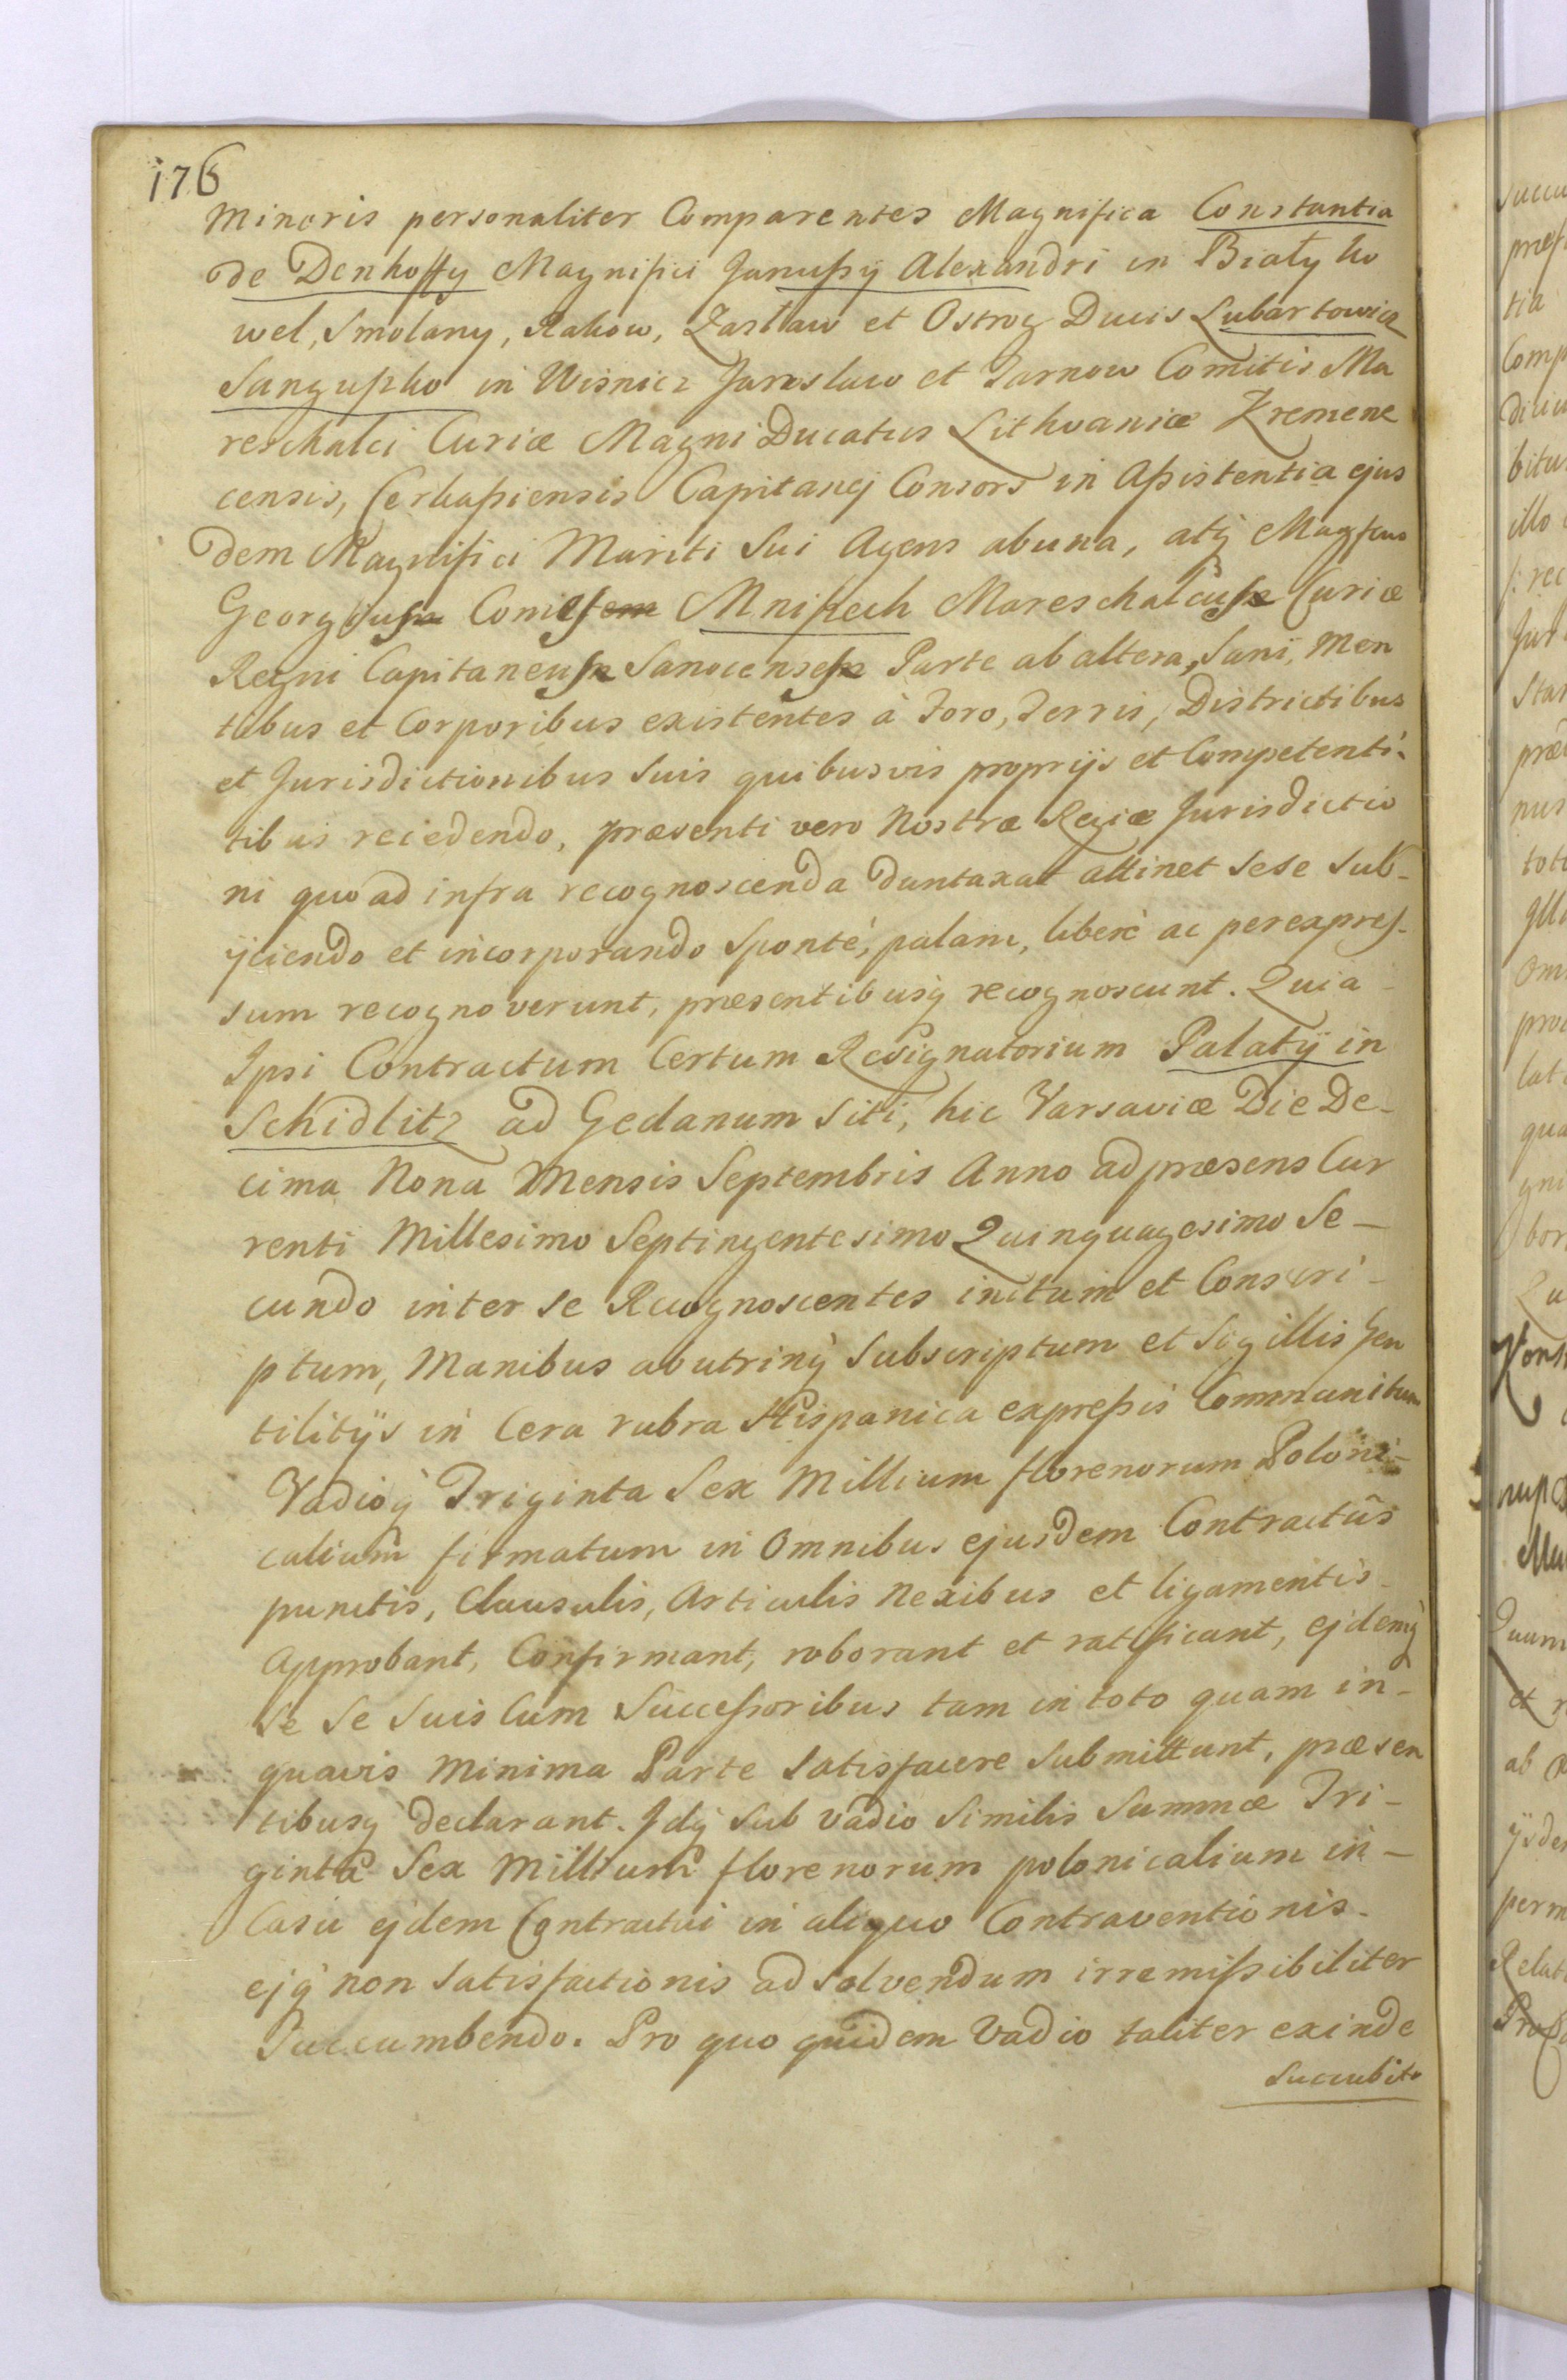 176
Minoris personaliter Comparentes Magnifica Constantia
de Denhoffy Magnifici Janußÿ Alexandri in Białÿ ko
wel, Smolany, Rakow, Zasław et Ostrog Ducis Lubartowicz
Sangußko in Wisnicz Jarosław et Tarnow Comitis Ma
reschalci Curiæ Magni Ducatus Lithvaniæ Kremene
censis, Cerkaßiensis Capitanej Consors in Aßistentia ejus
dem Magnifici Mariti Sui Agens ab una, atq Magfcus
Georgius Comes Mnißech Mareschalcus Curiæ
Regni Capitaneus Sanocenses Parte ab altera, Sani, Men
tibus et Corporibus existentes à Foro, Terris, Districtibus
et Jurisdictionibus Suis quibusvis proprijs et Competenti-
tibus recedendo, præsenti vero Nostræ Regiæ Jurisdictio
ni quo ad infra recognoscenda duntaxat attinet sese sub-
ijciendo et incorporando Sponté, palam, liberè ac per expres-
sum recognoverunt, præsentibusq recognoscunt. Quia -
Ipsi Contractum Certum Resignatorium Palatÿ in
Schidlitz ad Gedanum Siti, hic Varsaviæ Die De-
cima Nona Mensis Septembris Anno ad præsens Cur
renti Millesimo Septingentesimo Quinquagesimo Se-
cundo inter se Recognoscentes initum et Conscri-
ptum, Manibus ab utrinq Subscriptum et Sigillis Gen
tilitÿs in Cera rubra Hispanica expreßis Communitum
Vadioq Triginta Sex Millium florenorum Poloni-
calium firmatum in Omnibus ejusdem Contractûs
punctis, Clausulis, Articulis Nexibus et ligamentis -
Approbant, Confirmant, roborant et ratificant, ejdemq
Se Se Suis Cum Succeßoribus tam in toto quam in -
quavis Minima Parte Satisfacere Submittunt, præsen
tibusq declarant. Idq Sub vadio Similis Summæ Tri-
ginta Sex Millium florenorum polonicalium in -
Casu ejdem Contractui in aliquo Contraventionis -
ejq non Satisfactionis ad Solvendum irremißibiliter
Succumbendo. Pro quo quidem Vadio taliter exinde
Succubito